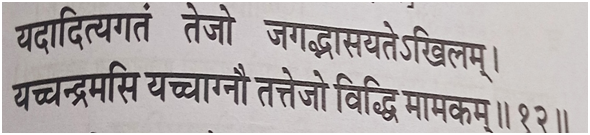 यदादित्यगतं तेजो जगद्भासयतेऽखिलम्।
यच्चन्द्रमसि यच्चाग्नौ तत्तेजो विद्धि मामकम्॥१२॥